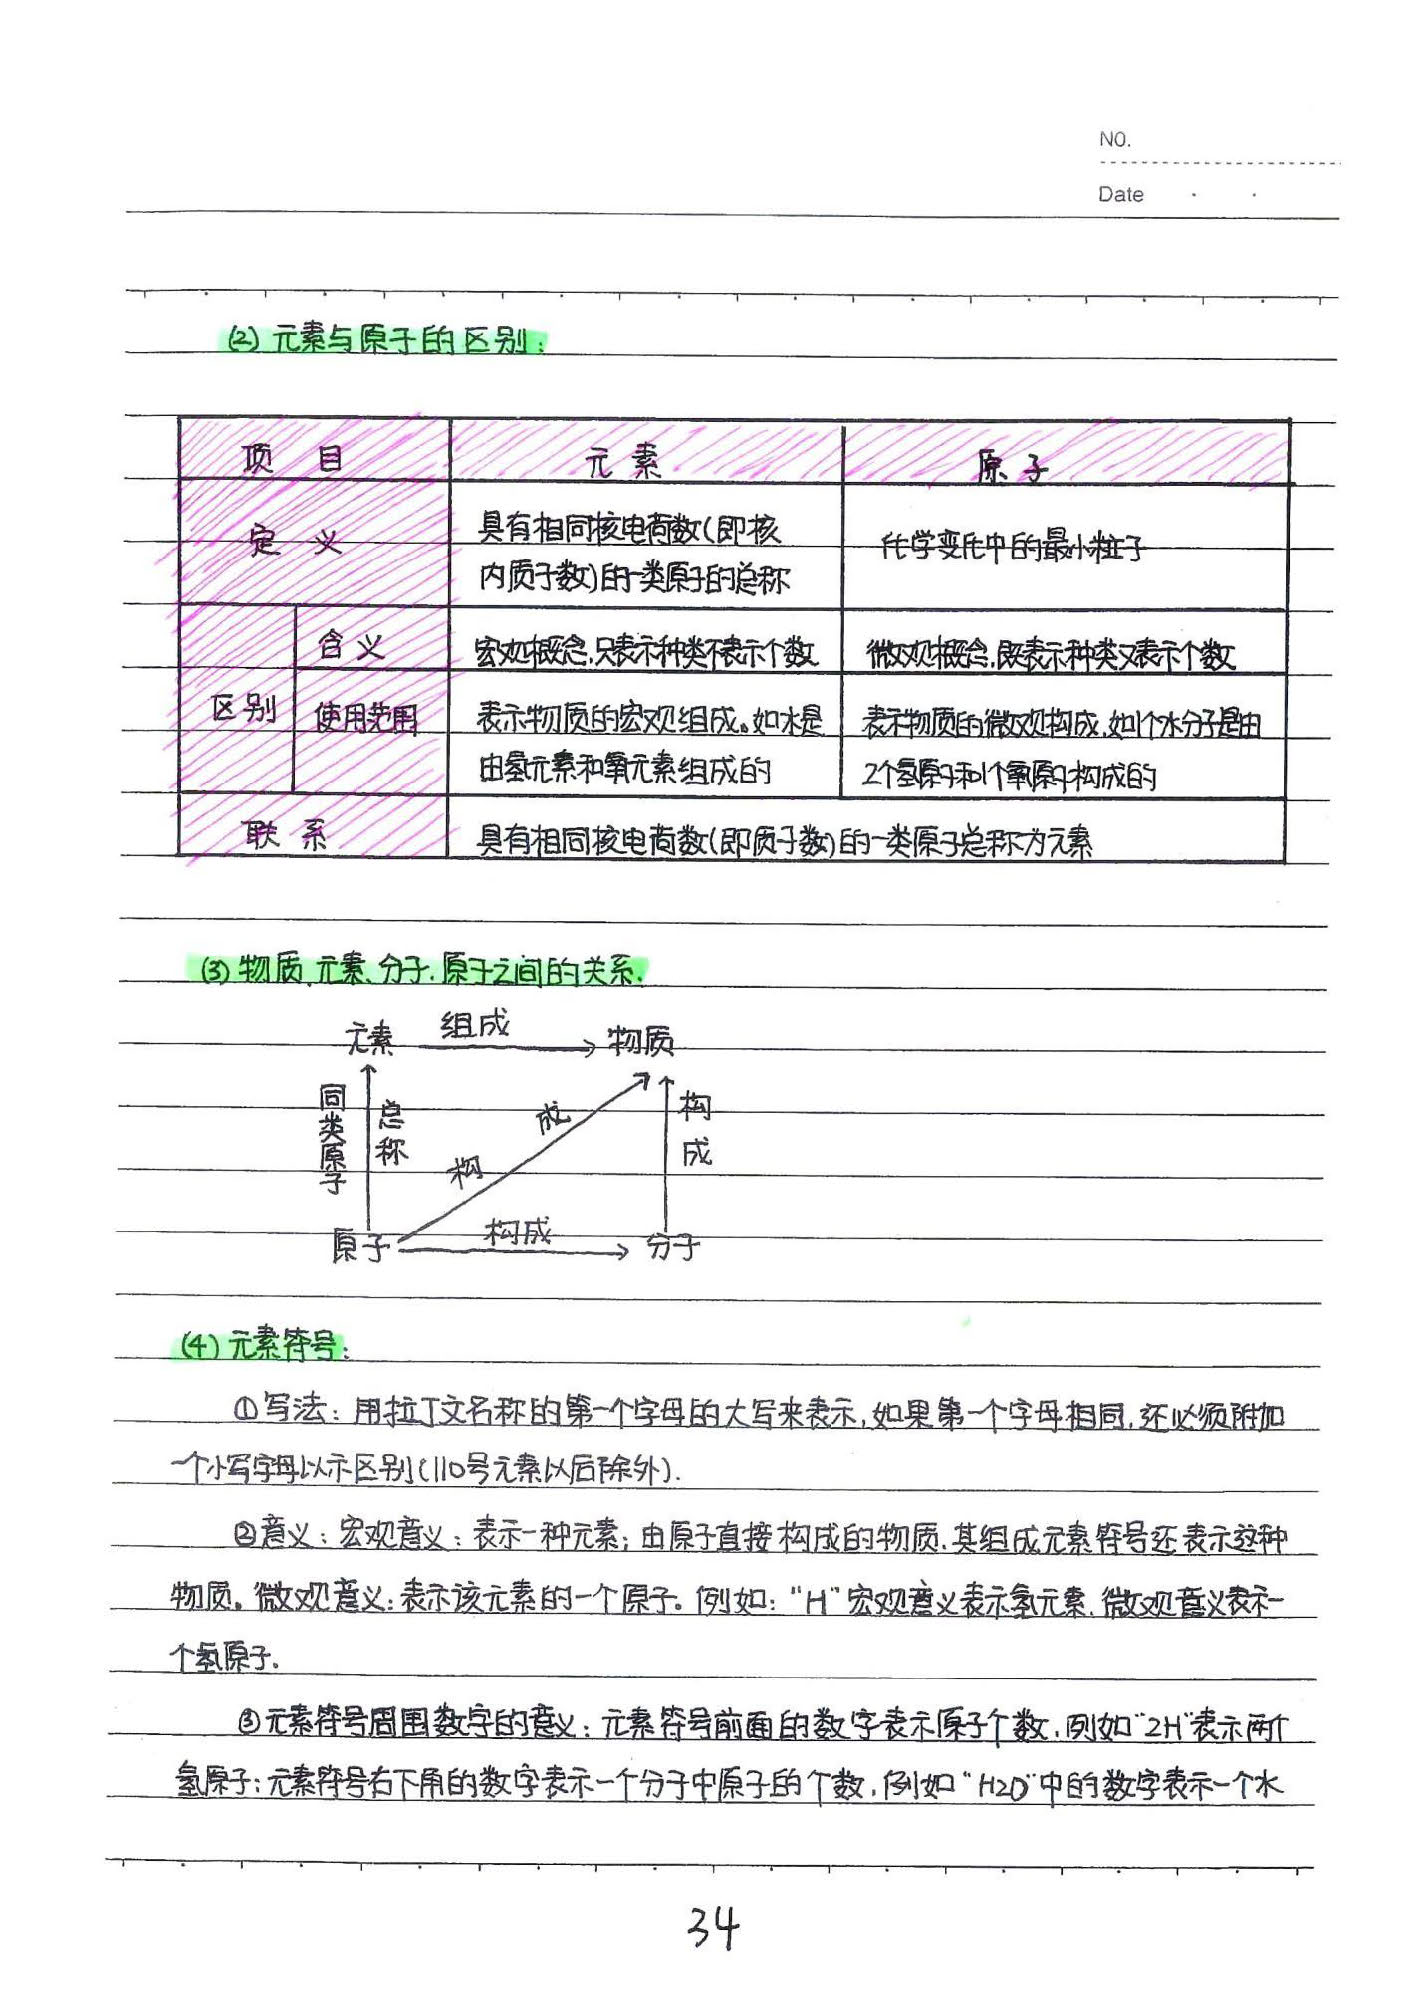 NO.
Date
(2) 元素与原子的区别:
项 目 元 素 原 子
定 义
具有相同核电荷数(即核
内质子数)的一类原子的总称
化学变化中的最小粒子
区别
含义
宏观概念,只表示种类不表示个数
微观概念,既表示种类又表示个数
使用范围
表示物质的宏观组成。如水是
由氢元素和氧元素组成的
表示物质的微观构成,如1个水分子是由
2个氢原子和1个氧原子构成的
联 系
具有相同核电荷数(即质子数)的一类原子总称为元素
(3) 物质、元素、分子、原子之间的关系.
元素 组成 物质
同类原子
总称
构成
构成
原子 构成 分子
(4) 元素符号:
①写法: 用拉丁文名称的第一个字母的大写来表示,如果第一个字母相同,还必须附加
一个小写字母以示区别(110号元素以后除外).
②意义: 宏观意义: 表示一种元素; 由原子直接构成的物质,其组成元素符号还表示这种
物质。微观意义: 表示该元素的一个原子。例如: “H”宏观意义表示氢元素,微观意义表示一
个氢原子.
③元素符号周围数字的意义: 元素符号前面的数字表示原子个数,例如“2H”表示两个
氢原子; 元素符号右下角的数字表示一个分子中原子的个数,例如“H2O”中的数字表示一个水
34